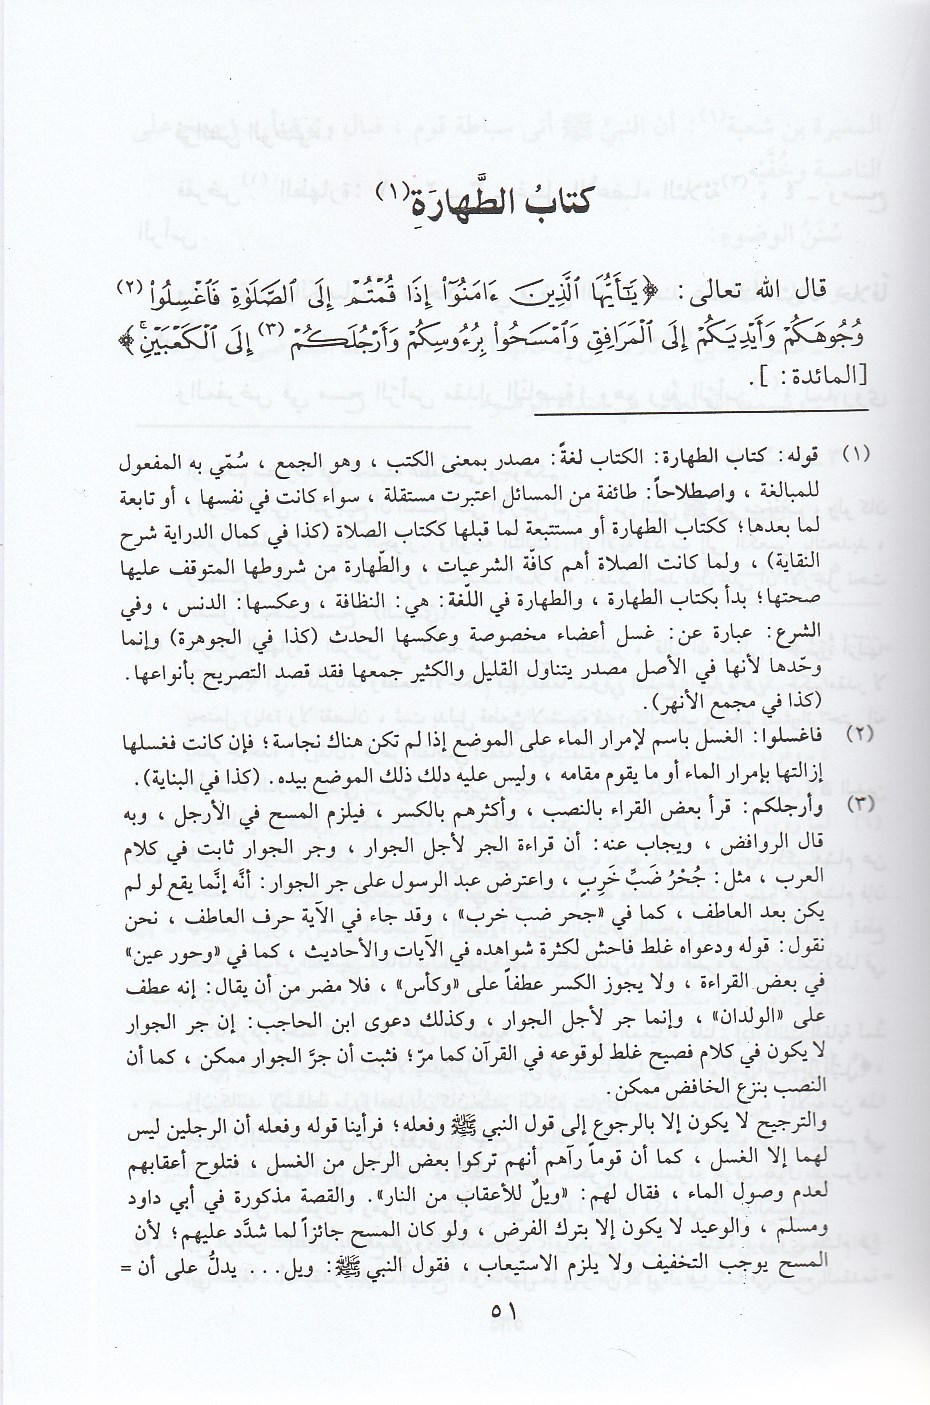 كتابُ الطَّهارَةِ (١)
قال الله تعالى: ﴿يَٰٓأَيُّهَا ٱلَّذِينَ ءَامَنُوٓا۟ إِذَا قُمْتُمْ إِلَى ٱلصَّلَوٰةِ فَٱغْسِلُوا۟ (٢)
وُجُوهَكُمْ وَأَيْدِيَكُمْ إِلَى ٱلْمَرَافِقِ وَٱمْسَحُوا۟ بِرُءُوسِكُمْ وَأَرْجُلَكُمْ (٣) إِلَى ٱلْكَعْبَيْنِۚ﴾
[المائدة: ].
(١) قوله: كتاب الطهارة: الكتاب لغةً: مصدر بمعنى الكتب ، وهو الجمع ، سُمّي به المفعول
للمبالغة ، واصطلاحاً: طائفة من المسائل اعتبرت مستقلة ، سواء كانت في نفسها ، أو تابعة
لما بعدها؛ ككتاب الطهارة أو مستتبعة لما قبلها ككتاب الصلاة (كذا في كمال الدراية شرح
النقاية) ، ولما كانت الصلاة أهم كافّة الشرعيات ، والطّهارة من شروطها المتوقف عليها
صحتها؛ بدأ بكتاب الطهارة ، والطهارة في اللّغة: هي: النظافة ، وعكسها: الدنس ، وفي
الشرع: عبارة عن: غسل أعضاء مخصوصة وعكسها الحدث (كذا في الجوهرة) وإنما
وحّدها لأنها في الأصل مصدر يتناول القليل والكثير جمعها فقد قصد التصريح بأنواعها.
(كذا في مجمع الأنهر).
(٢) فاغسلوا: الغسل باسم لإمرار الماء على الموضع إذا لم تكن هناك نجاسة؛ فإن كانت فغسلها
إزالتها بإمرار الماء أو ما يقوم مقامه ، وليس عليه دلك ذلك الموضع بيده. (كذا في البناية).
(٣) وأرجلكم: قرأ بعض القراء بالنصب ، وأكثرهم بالكسر ، فيلزم المسح في الأرجل ، وبه
قال الروافض ، ويجاب عنه: أن قراءة الجر لأجل الجوار ، وجر الجوار ثابت في كلام
العرب ، مثل: جُحْرُ ضَبِّ خَرِبِ ، واعترض عبد الرسول على جر الجوار: أنَّه إنَّما يقع لو لم
يكن بعد العاطف ، كما في «جحر ضب خرب» ، وقد جاء في الآية حرف العاطف ، نحن
نقول: قوله ودعواه غلط فاحش لكثرة شواهده في الآيات والأحاديث ، كما في «وحور عين»
في بعض القراءة ، ولا يجوز الكسر عطفاً على «وكأس» ، فلا مضر من أن يقال: إنه عطف
على «الولدان» ، وإنما جر لأجل الجوار ، وكذلك دعوى ابن الحاجب: إن جر الجوار
لا يكون في كلام فصيح غلط لوقوعه في القرآن كما مرّ؛ فثبت أن جرَّ الجوار ممكن ، كما أن
النصب بنزع الخافض ممكن.
والترجيح لا يكون إلا بالرجوع إلى قول النبي ﷺ وفعله؛ فرأينا قوله وفعله أن الرجلين ليس
لهما إلا الغسل ، كما أن قوماً رآهم أنهم تركوا بعض الرجل من الغسل ، فتلوح أعقابهم
لعدم وصول الماء ، فقال لهم: «ويلٌ للأعقاب من النار». والقصة مذكورة في أبي داود
ومسلم ، والوعيد لا يكون إلا بترك الفرض ، ولو كان المسح جائزاً لما شدَّد عليهم؛ لأن
المسح يوجب التخفيف ولا يلزم الاستيعاب ، فقول النبي ﷺ: ويل... يدلُّ على أن =
٥١